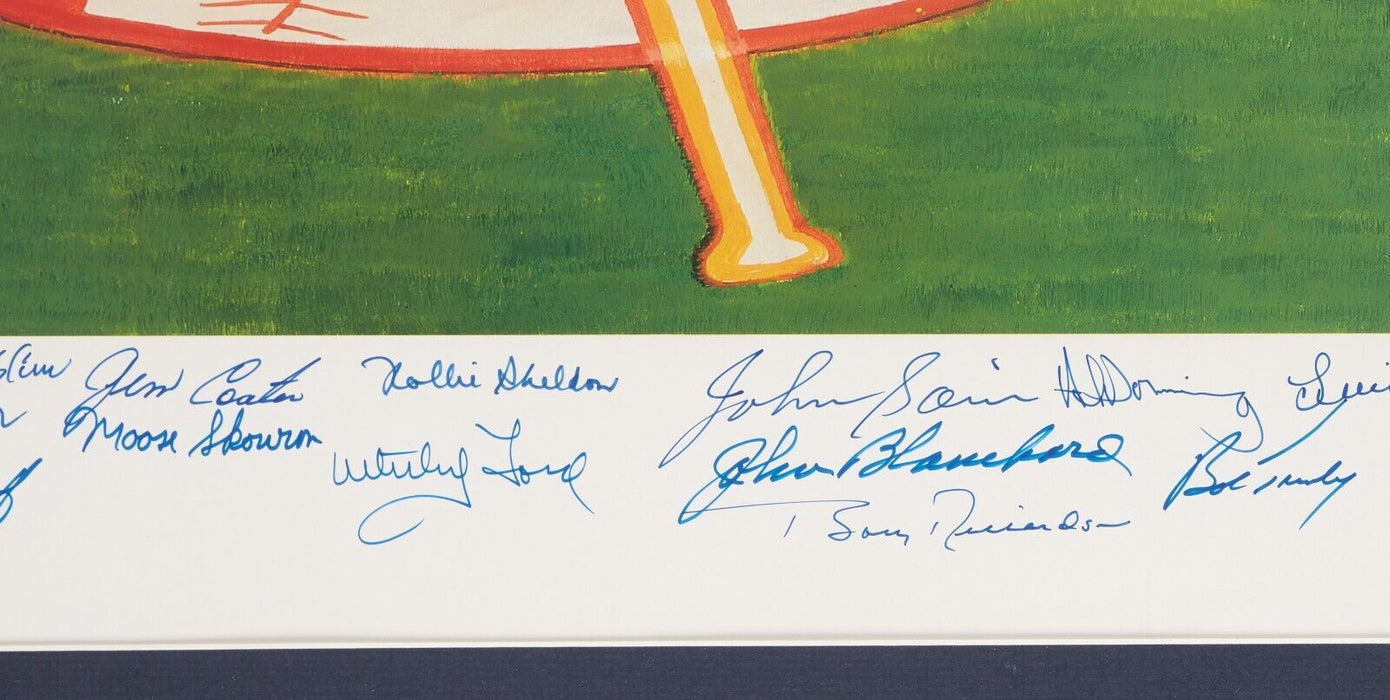 Jim Coates
Rollie Sheldon
John Sain
Al Downing
Moose Skowron
Whitey Ford
John Blanchard
Bob Turley
Bobby Richardson